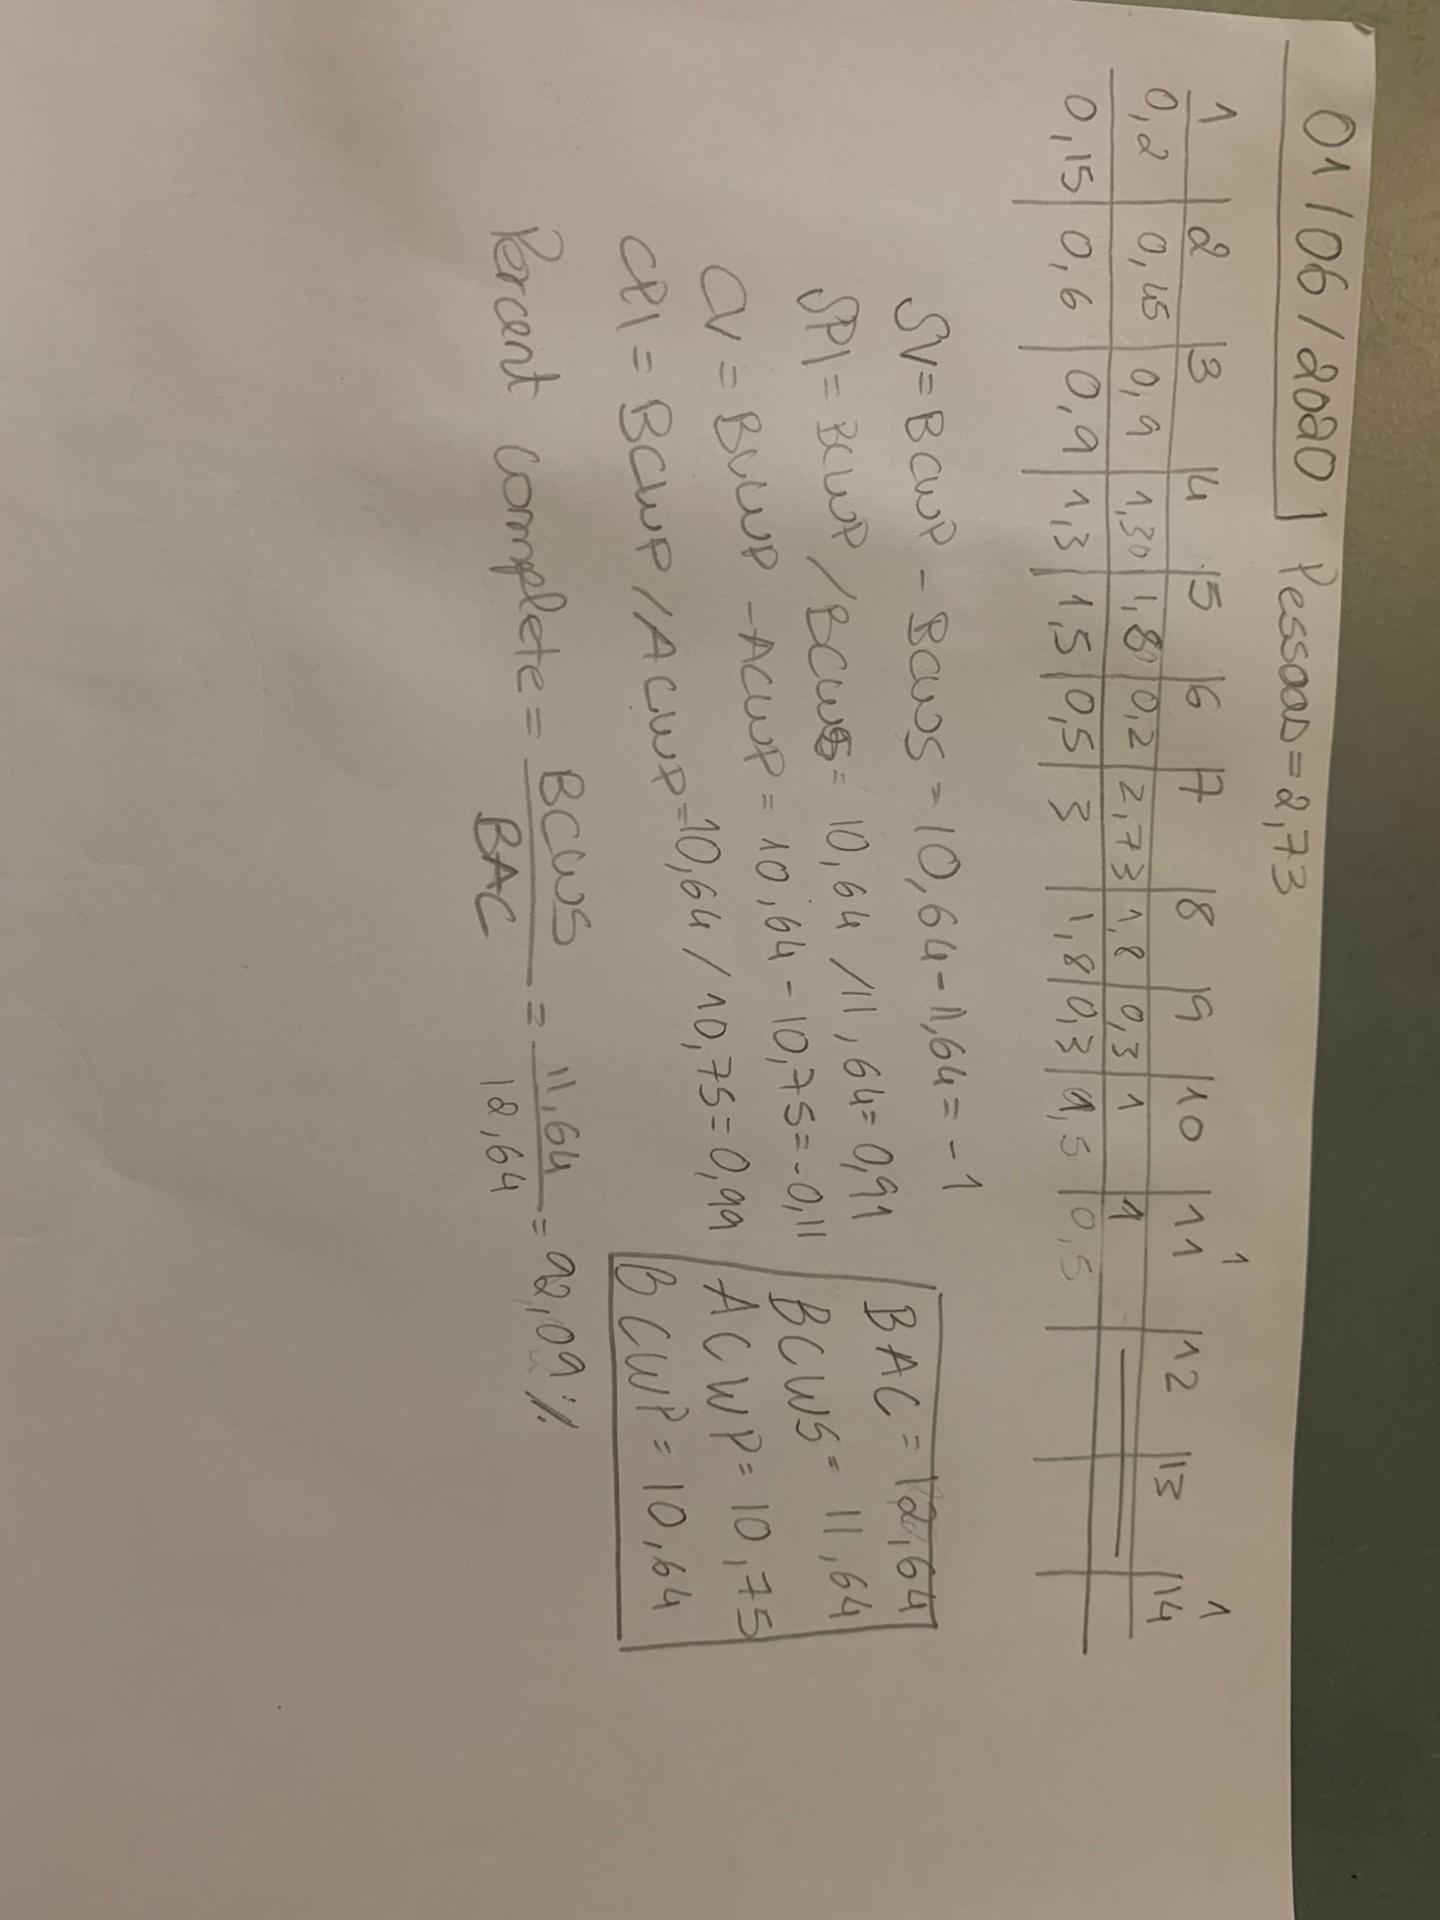 01/06/2020 | Pessoas = 2,73
1 1
1 | 2 | 3 | 4 | 5 | 6 | 7 | 8 | 9 | 10 | 11 | 12 | 13 | 14
0,2 | 0,45 | 0,9 | 1,30 | 1,80 | 0,2 | 2,73 | 1,8 | 0,3 | 1 | 1
0,15 | 0,6 | 0,9 | 1,3 | 1,5 | 0,5 | 3 | 1,8 | 0,3 | ,5 | 0,5
SV = BCWP - BCWS = 10,64 - 11,64 = -1
SPI = BCWP / BCWS = 10,64 / 11,64 = 0,91
CV = BCWP - ACWP = 10,64 - 10,75 = -0,11
CPI = BCWP / ACWP = 10,64 / 10,75 = 0,99
BAC = 12,64
BCWS = 11,64
ACWP = 10,75
BCWP = 10,64
Percent complete = BCWS / BAC = 11,64 / 12,64 = 92,09 %